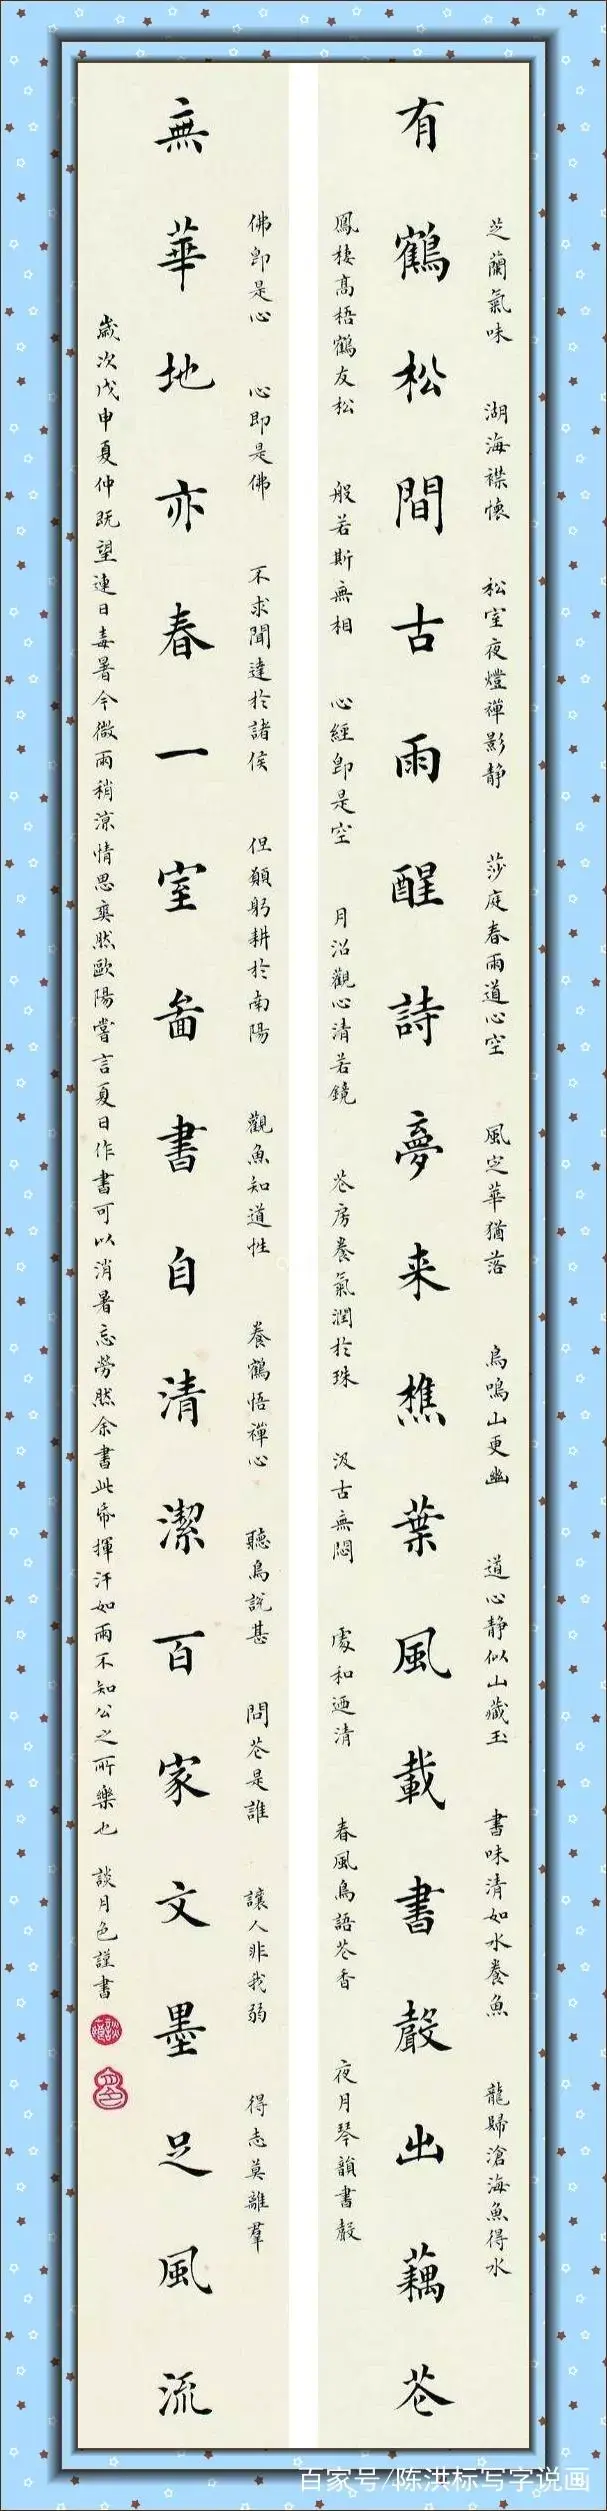 芝蘭氣味 湖海襟懷 松室夜燈禪影静 莎庭春雨道心空 風定華猶落 鳥鳴山更幽 道心静似山藏玉 書味清如水養魚 龍歸滄海魚得水
有鶴松間古雨醒詩夢来樵葉風載書聲出藕苍
鳳棲高梧鶴友松 般若斯無相 心經即是空 月沼觀心清若鏡 苍房養氣潤於珠 汲古無悶 處和迺清 春風鳥語苍香 夜月琴韻書聲
佛即是心 心即是佛 不求聞達於諸侯 但願躬耕於南陽 觀魚知道性 養鶴悟禪心 聽鳥説甚 問苍是誰 讓人非我弱 得志莫離羣
無華地亦春一室啚書自清潔百家文墨足風流
歲次戊申夏仲既望連日毒暑今微雨稍涼情思爽然歐陽嘗言夏日作書可以消暑忘勞然余書此帋揮汗如雨不知公之所樂也 談月色謹書
百家号/陈洪标写字说画